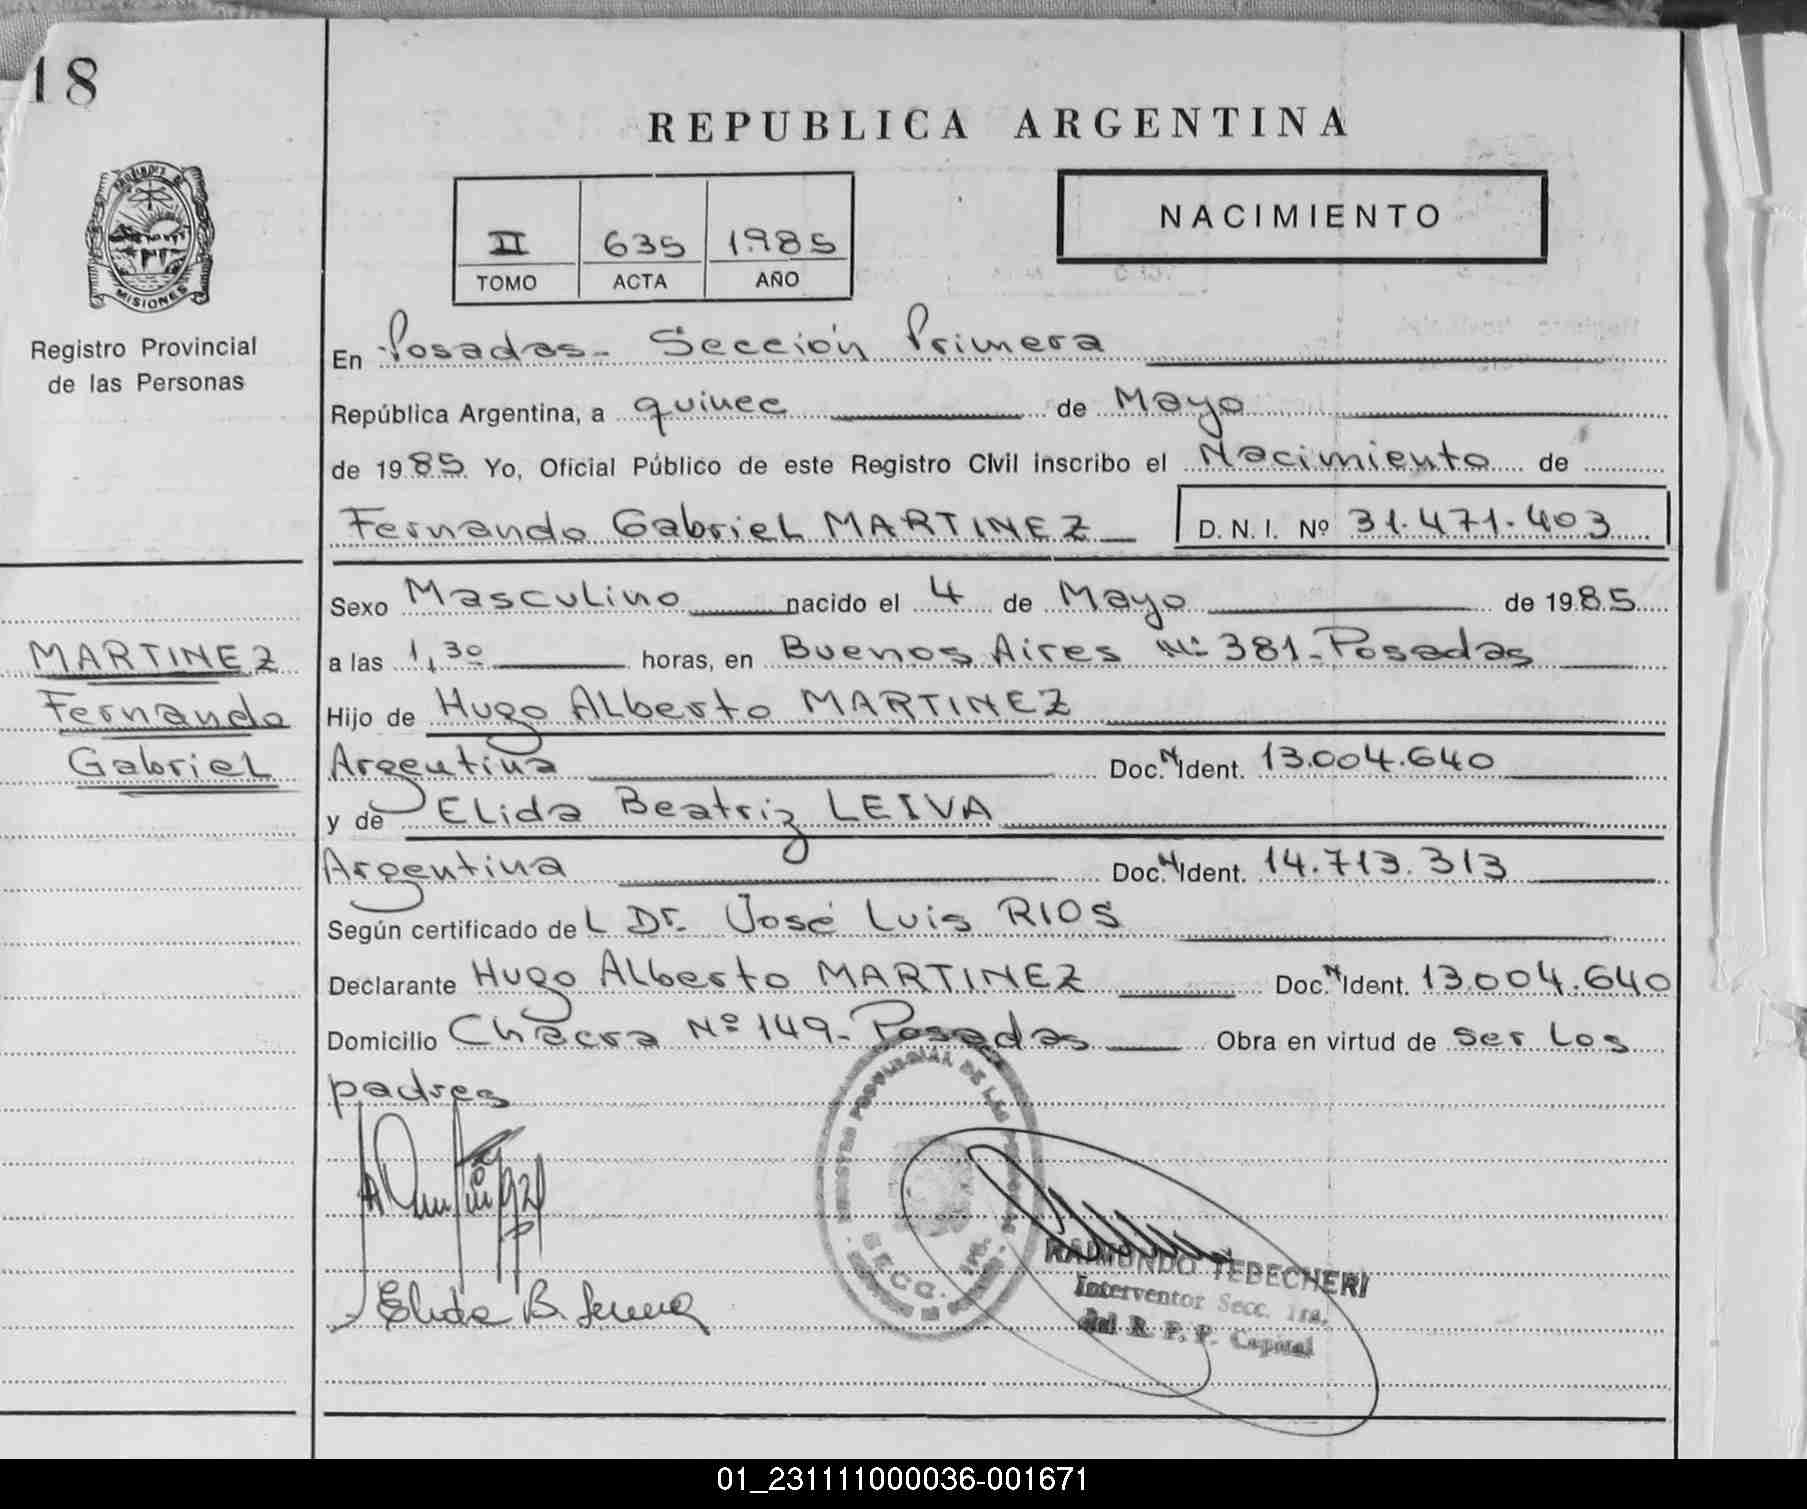 18
REPUBLICA ARGENTINA
PROVINCIA DE
MISIONES
Registro Provincial
de las Personas
II 635 1985
TOMO ACTA AÑO
NACIMIENTO
En Posadas - Sección Primera
República Argentina, a quince de Mayo
de 1985 Yo, Oficial Público de este Registro Civil inscribo el Nacimiento de
Fernando Gabriel MARTINEZ D. N. I. Nº 31.471.403
Sexo Masculino nacido el 4 de Mayo de 1985
MARTINEZ
Fernando
Gabriel
a las 1,30 horas, en Buenos Aires Nº 381 - Posadas
Hijo de Hugo Alberto MARTINEZ
Argentina Doc. N Ident. 13.004.640
y de Elida Beatriz LEIVA
Argentina Doc. N Ident. 14.713.313
Según certificado del Dr. José Luis RIOS
Declarante Hugo Alberto MARTINEZ Doc. N Ident. 13.004.640
Domicilio Chacra Nº 149 - Posadas Obra en virtud de ser los
padres
REGISTRO PROVINCIAL DE LAS PERSONAS
SECC. 1ra.
Elida B.
RAIMUNDO TEDECHERI
Interventor Secc. 1ra.
del R. P. P. Capital
01_231111000036-001671